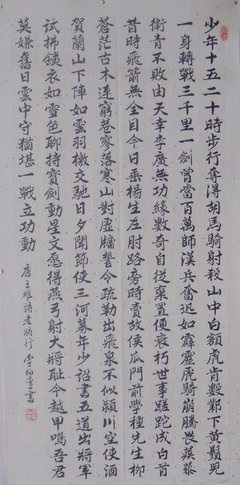 少年十五二十時步行奪得胡馬騎射殺山中白額虎肯數鄴下黃鬚兒
一身轉戰三千里一劍曾當百萬師漢兵奮迅如霹靂虜騎崩騰畏蒺藜
衛青不敗由天幸李廣無功緣數奇自從棄置便衰朽世事蹉跎成白首
昔時飛箭無全目今日垂楊生左肘路旁時賣故侯瓜門前學種先生柳
蒼茫古木連窮巷寥落寒山對虛牖誓令疏勒出飛泉不似潁川空使酒
賀蘭山下陣如雲羽檄交馳日夕聞節使三河募年少詔書五道出將軍
試拂銕衣如雪色聊持寶劍動星文願得燕弓射大將恥令越甲鳴吾君
莫嫌舊日雲中守猶堪一戰立功勳
唐王維詩老將行 李 書